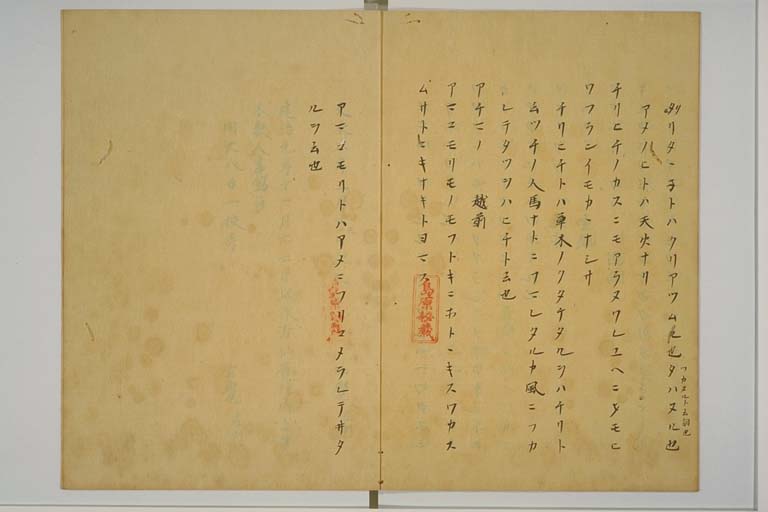 クリタヽネトハクリアツム是也タハヌル也
ツカヌルト云詞也
アメノヒトハ天火ナリ
チリヒチノカスニモアラヌワレユヘニヲモヒ
ワフランイモカヽナシサ
チリヒチトハ草木ノクタケタルヲハチリト
云ツチノ人馬ナトニフマレタルカ風ニフカ
レテタツヲハヒチト云也
アチマノ 越前
アマヽモリモノモフトキニホトヽキスワカス
ムサトニキナキトヨマス
島原秘蔵
アマヽモリトハアメニフリコメラレテヰタ
ルヲ云也